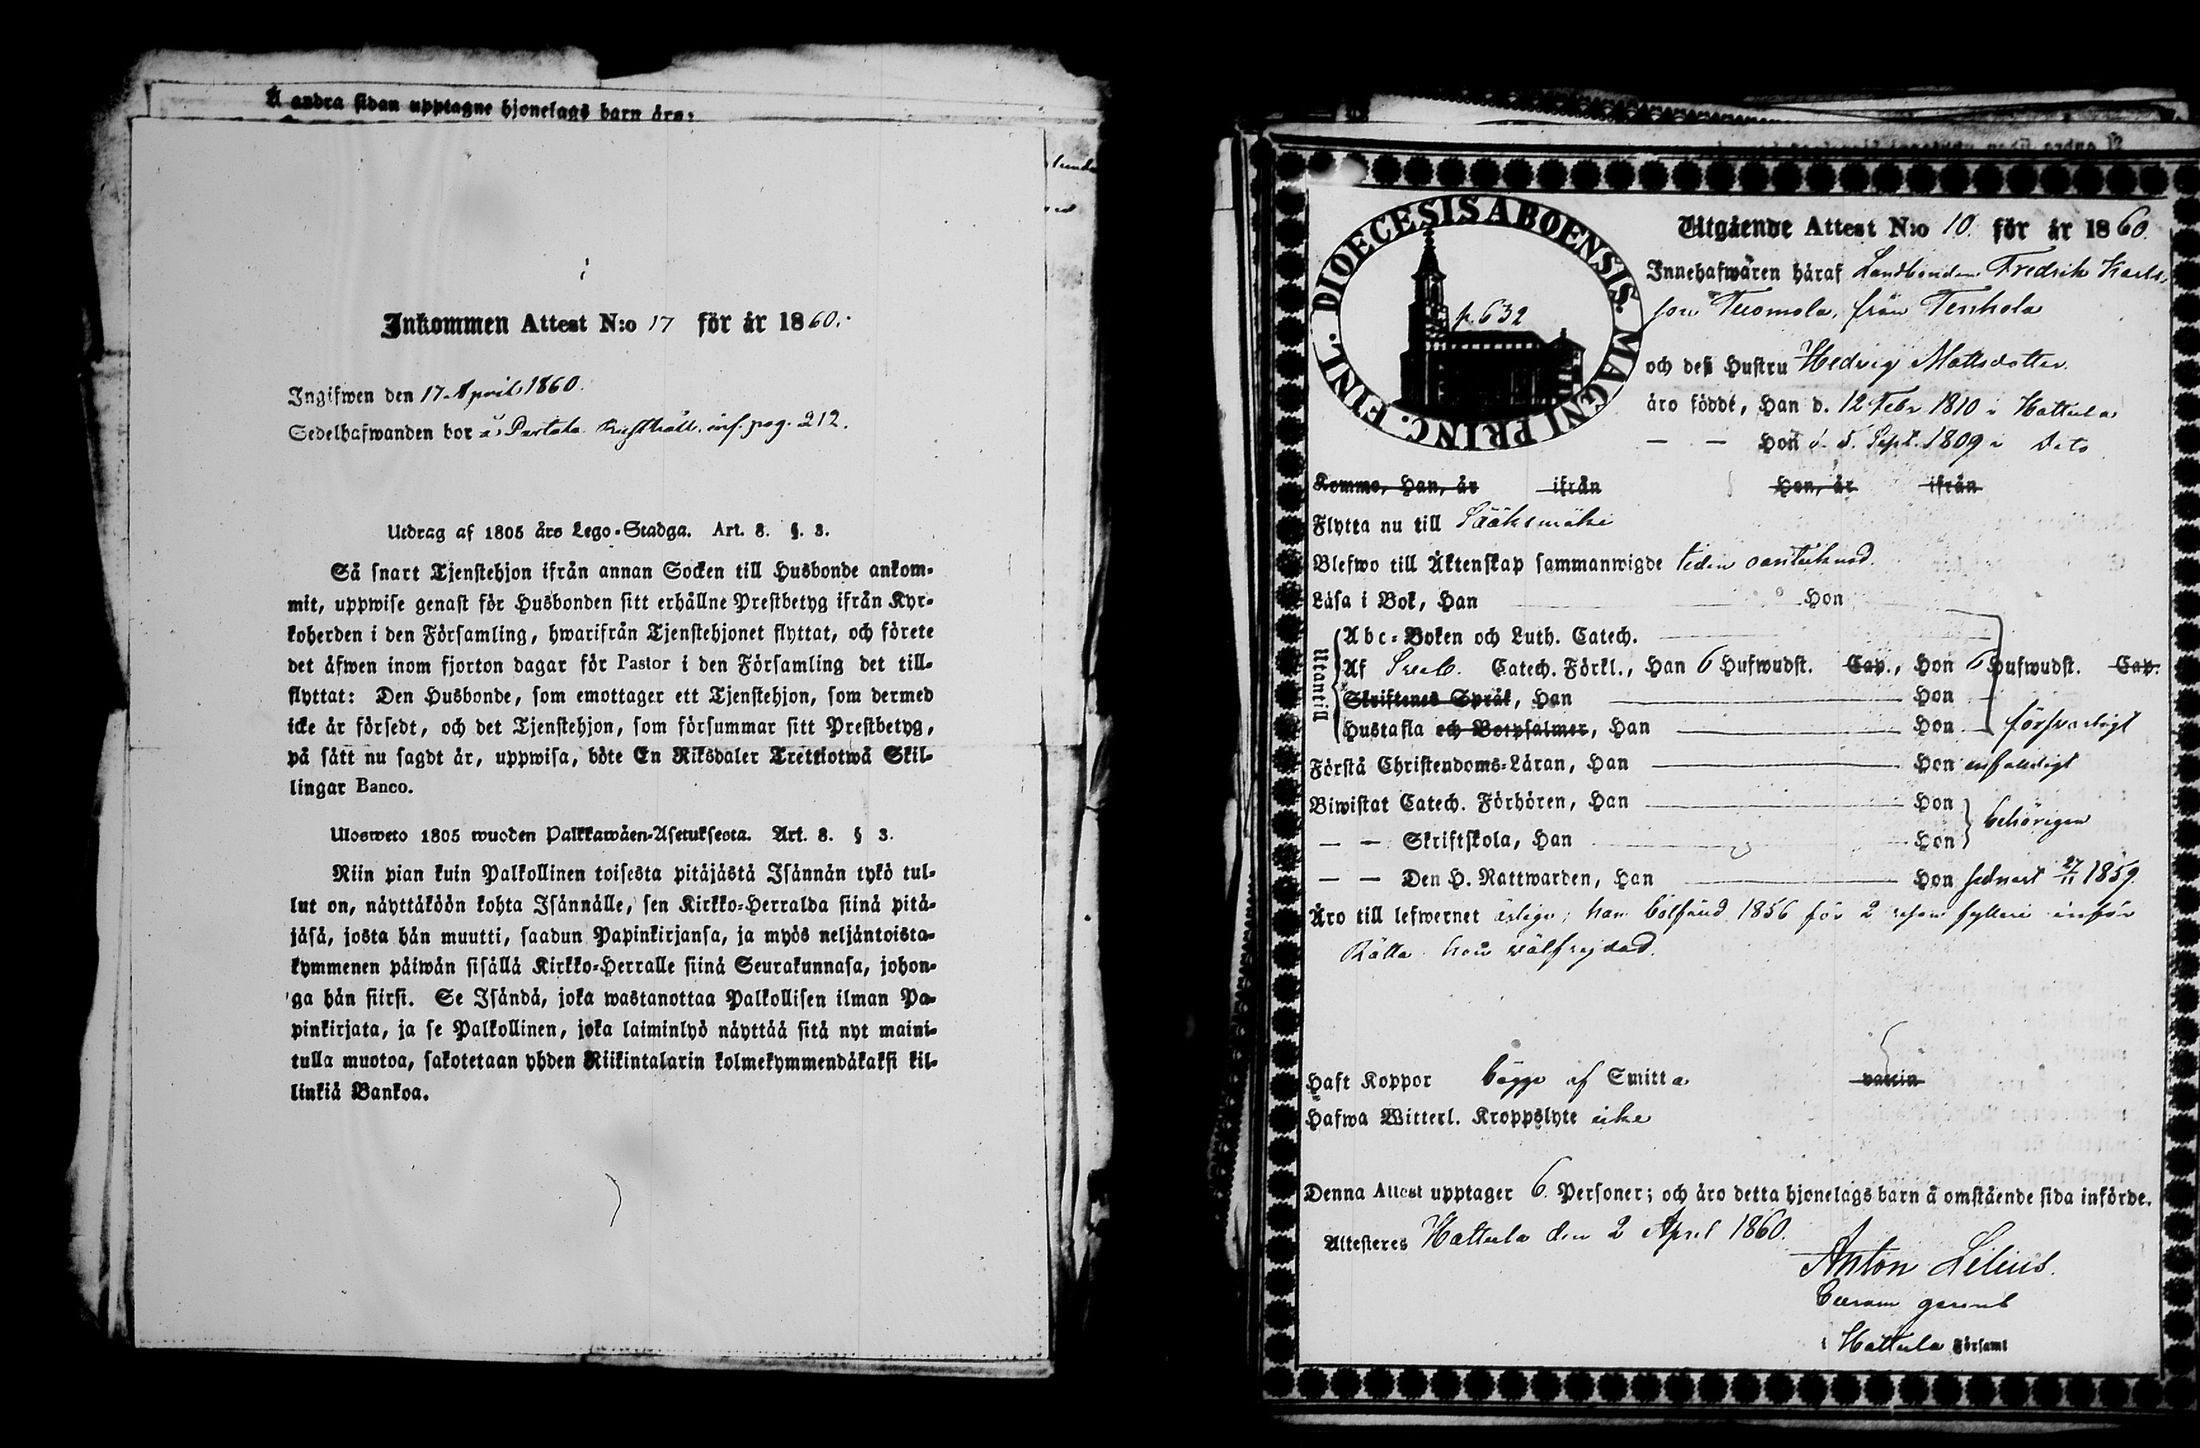 Å andra sidan upptagne hjonelags barn äro:
Inkommen Attest N:o 17 för år 1860.
Ingifwen den 17 April 1860.
Sedelhafwanden bor å Partala Rusthåll, inf. pag. 212.
Utdrag af 1805 års Lego-Stadga. Art. 8. §. 3.
Så snart Tjenstehjon ifrån annan Socken till Husbonde ankom-
mit, uppwise genast för Husbonden sitt erhållne Prestbetyg ifrån Kyr-
koherden i den Församling, hwarifrån Tjenstehjonet flyttat, och förete
det äfwen inom fjorton dagar för Pastor i den Församling det till-
flyttat: Den Husbonde, som emottager ett Tjenstehjon, som dermed
icke är försedt, och det Tjenstehjon, som försummar sitt Prestbetyg,
på sätt nu sagdt är, uppwisa, böte En Riksdaler Trettiotwå Skil-
lingar Banco.
Ulosweto 1805 wuoden Palkkawäen-Asetuksesta. Art. 8. § 3.
Niin pian kuin Palkollinen toisesta pitäjästä Isännän tykö tul-
lut on, näyttäköön kohta Isännälle, sen Kirkko-Herralda siinä pitä-
jäsä, josta hän muutti, saadun Papinkirjansa, ja myös neljäntoista-
kymmenen päiwän sisällä Kirkko-Herralle siinä Seurakunnasa, johon-
ga hän siirsi. Se Isändä, joka wastanottaa Palkollisen ilman Pa-
pinkirjata, ja se Palkollinen, joka laiminlyö näyttää sitä nyt maini-
tulla muotoa, sakotetaan yhden Riikintalarin kolmekymmendäkaksi kil-
linkiä Bankoa.
DIOECESIS ABOENSIS. MAGNI PRINC. FINL.
p. 632
Utgående Attest N:o 10. för år 1860.
Innehafwaren häraf Landbonden Fredrik Karls-
son Tuomola, från Tenhola
och deß Hustru Hedvig Mattsdotter
äro födde, Han d. 12 Febr 1810 i Hattula
— — Hon d. 5. Sept. 1809 i Dito
Komme, Han, år ifrån Hon, år ifrån
Flytta nu till Sääksmäki
Blefwo till Äktenskap sammanwigde tiden oantecknad.
Läsa i Bok, Han Hon
Utantill
Abc-Boken och Luth. Catech.
Af Sveb. Catech. Förkl., Han 6 Hufwudst. Cap., Hon 6 Hufwudst. Cap.
Skriftenes Språk, Han Hon
Hustafla och Botpsalmer, Han Hon försvarligt
Förstå Christendoms-Läran, Han Hon enfaldigt
Biwistat Catech. Förhören, Han Hon
— — Skriftskola, Han Hon behörigen
— — Den H. Nattwarden, Han Hon sednast 27/11 1859.
Äro till lefwernet ärlige; han bötfäld 1856 för 2 resan fylleri inför
Rätta. hon välfrejdad.
Haft Koppor bägge af Smitta vaccin
Hafwa Witterl. Kroppslyte icke
Denna Attest upptager 6. Personer; och äro detta hjonelags barn å omstående sida införde.
Attesteres Hattula den 2 April 1860.
Anton Lilius.
Curam gerens
i Hattula Församl